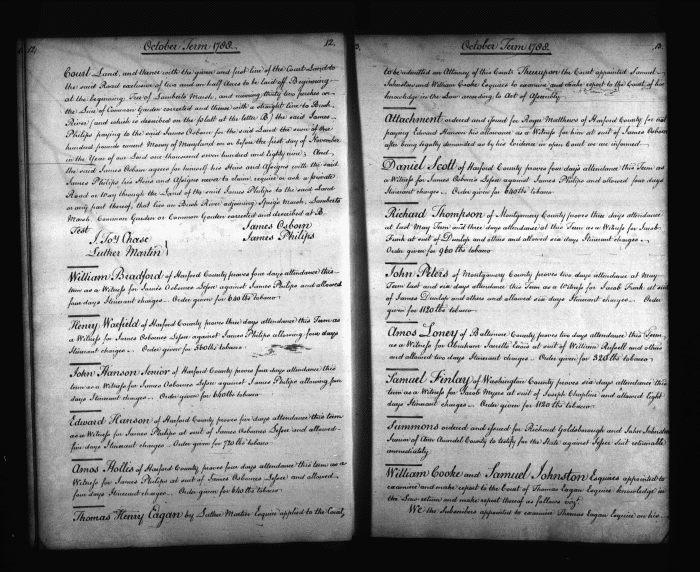 October Term 1788. 12.
Court Land, and thence with the given and first line of the Court Land to
the said Road exclusive of two and an half Acres to be laid off Beginning
at the beginning Tree of Lamberts Marsh, and running thirty two perches on
the Line of Common Garden corrected and thence with a straight line to Bush
River / and which is described on the plolt at the letter B / the said James
Philips paying to the said James Osborn for the said Land the sum of One
hundred pounds current Money of Maryland on or before the first day of November
in the Year of our Lord one thousand seven hundred and Eighty nine; And
the said James Osborn agrees for himself his Heirs and Assigns with the said
James Philips his Heirs and Assigns never to claim require or ask a private
Road or Way through the Land of the said James Philips to the said Land
or any part thereof, that lies on Bush River adjoining Marsh, Lamberts
Marsh, Common Garden or Common Garden corrected and described at B.
Test James Osborn
J. Toy Chase James Philips
Luther Martin
William Bradford of Harford County proves four days attendance this
term as a Witness for James Osbornes Lessee against James Philips and allowed
four days Itinerant charges.. Order given for 640 lbs tobacco
Henry Waefield of Harford County proves three days attendance this Term as
a Witness for James Osbornes Lessee against James Philips allowing four days
Itinerant charges.. Order given for 560 lbs tobacco.
John Hanson Senior of Harford County proves four days attendance this
term as a Witness for James Osbornes Lessee against James Philips allowing four
days Itinerant charges.. Order given for 640 lbs tobacco.
Edward Hanson of Harford County proves five days attendance this term
as a Witness for James Philips at suit of James Osbornes Lessee and allowed
four days Itinerant charges.. Order given for 720 lbs tobacco
Amos Hoiles of Harford County proves four days attendance this term as a
Witness for James Philips at suit of James Osbornes Lessee and allowed
four days Itinerant charges.. Order given for 640 lbs tobacco.
Thomas Henry Eagan by Luther Martin Esquire applied to the Court
October Term 1788. 13.
to be admitted an Attorney of this Court Thereupon the Court appointed Samuel
Johnston and William Cooke Esquires to examine and make report to the Court of his
knowledge in the Law according to Act of Assembly
Attachment ordered and issued for Roger Matthews of Harford County for not
paying Edward Hanson his allowance as a Witness for him at suit of James Osborn
after being legally demanded as by his Evidence in open Court we are informed.
Daniel Scott of Harford County proves four days attendance this Term as
a Witness for James Osborns Lessee against James Philips and allowed four days
Itinerant charges.. Order given for 640 lbs tobacco
Richard Thompson of Montgomery County proves three days attendance
at last May Term and three days attendance at this Term as a Witness for Jacob
Funk at suit of Dunlop and others and allowed six days Itinerant charges..
Order given for 960 lbs tobacco
John Peters of Montgomery County proves two days attendance at May
Term last and six days attendance this Term as a Witness for Jacob Funk at suit
of James Dunlop and others and allowed six days Itinerant charges.. Order
given for 1120 lbs tobacco.
Amos Loney of Baltimore County proves two days attendance this Term,
as a Witness for Abraham Jarretts Exors at suit of William Russell and others
and allowed two days Itinerant charges.. Order given for 320 lbs tobacco
Samuel Finlay of Washington County proves six days attendance this
term as a Witness for Jacob Myers at suit of Joseph Chapline and allowed Eight
days Itinerant charges.. Order given for 1120 lbs tobacco.
Summons ordered and issued for Richard Goldsborough and John Johnston
Junior of Ann Arundel County to testify for the State against suit returnable
immediately
William Cooke and Samuel Johnston Esquires appointed to
examine and make report to the Court of Thomas Eagan Esquire knowledge in
the Law return and make report thereof as follows vizt
We the Subscribers appointed to examine Thomas Eagan Esquire on his